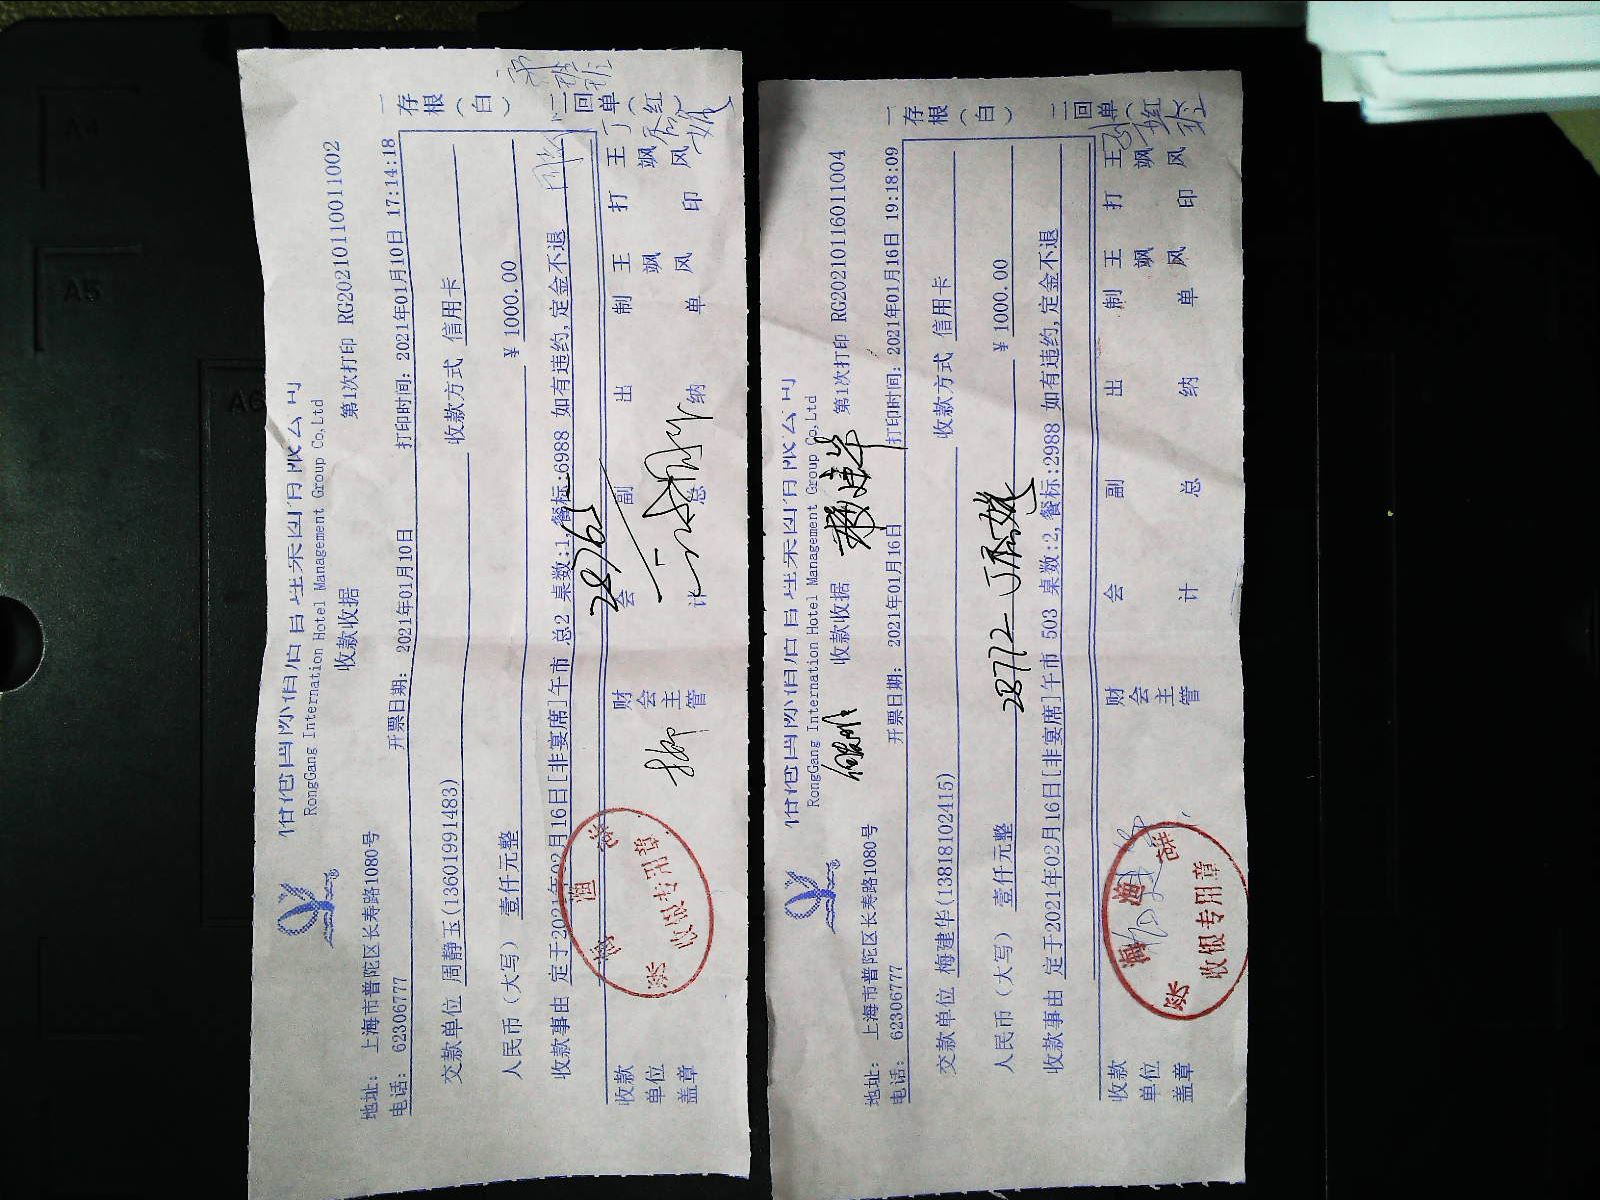 RongGang Internation Hotel Management Group Co,Ltd
收款收据
第1次打印 RG20210110011002
地址: 上海市普陀区长寿路1080号
电话: 62306777
开票日期: 2021年01月10日
打印时间: 2021年01月10日 17:14:18
交款单位 周静玉(13601991483)
收款方式 信用卡
人民币(大写) 壹仟元整
¥ 1000.00
收款事由 定于2021年02月16日[非宴席]午市 总2 桌数:1,餐标:6988 如有违约,定金不退
28765
收款单位盖章
财会主管
会计
副总
出纳
制单
王飒风
打印
王飒风
一存根(白)
二回单(红)
收银专用章
RongGang Internation Hotel Management Group Co,Ltd
收款收据
第1次打印 RG20210116011004
地址: 上海市普陀区长寿路1080号
电话: 62306777
开票日期: 2021年01月16日
打印时间: 2021年01月16日 19:18:09
交款单位 梅建华(13818102415)
收款方式 信用卡
人民币(大写) 壹仟元整
¥ 1000.00
28772
收款事由 定于2021年02月16日[非宴席]午市 503 桌数:2,餐标:2988 如有违约,定金不退
收款单位盖章
财会主管
会计
副总
出纳
制单
王飒风
打印
王飒风
一存根(白)
二回单(红)
收银专用章
A4
A5
A6